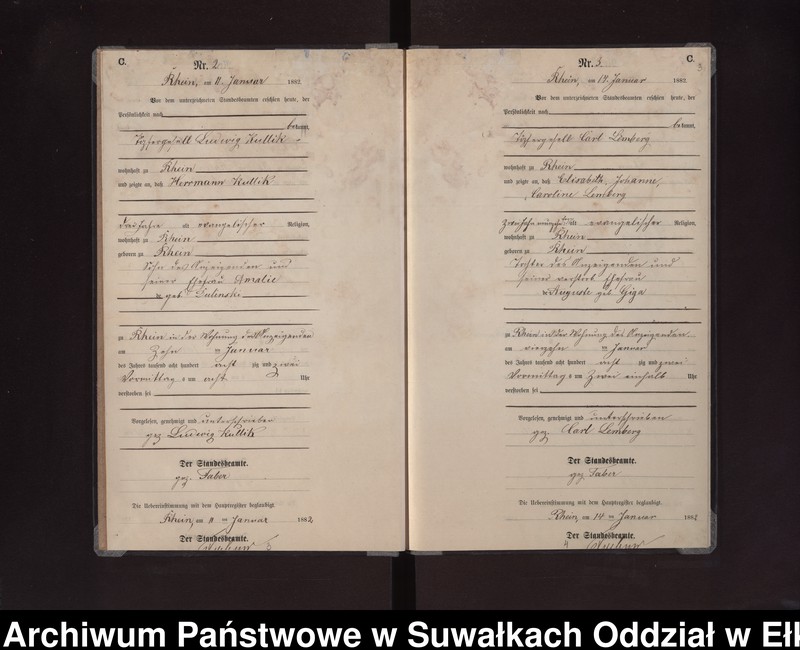 C.
Nr. 2
Rhein, am 11. Januar 1882.
Vor dem unterzeichneten Standesbeamten erschien heute, der
Persönlichkeit nach
bekannt,
Töpfergesell Ludwig Kullik
wohnhaft zu Rhein
und zeigte an, daß Herrmann Kullik
alt evangelischer Religion,
wohnhaft zu Rhein
geboren zu Rhein
Sohn des Anzeigenden und
seiner Ehefrau Amalie
geb Dulinski
zu Rhein in der Wohnung des Anzeigenden
am Zehn ten Januar
des Jahres tausend acht hundert acht zig und zwei
Vormittags um acht Uhr
verstorben sei
Vorgelesen, genehmigt und unterschrieben
gez Ludwig Kullik
Der Standesbeamte.
gez. Faber
Die Uebereinstimmung mit dem Hauptregister beglaubigt.
Rhein, am 11 ten Januar 1882
Der Standesbeamte.
C.
Nr. 3.
Rhein, am 14. Januar 1882
Vor dem unterzeichneten Standesbeamten erschien heute, der
Persönlichkeit nach
bekannt,
Töpfergesell Carl Lemberg
wohnhaft zu Rhein
und zeigte an, daß Elisabeth, Johanne,
Caroline Lemberg
alt evangelischer Religion,
wohnhaft zu Rhein
geboren zu Rhein
Tochter des Anzeigenden und
seiner Ehefrau
Auguste geb Giga
zu Rhein in der Wohnung des Anzeigenden
am vierzehn ten Januar
des Jahres tausend acht hundert acht zig und zwei
Vormittags um Zwei einhalb Uhr
verstorben sei
Vorgelesen, genehmigt und unterschrieben
gez. Carl Lemberg
Der Standesbeamte.
gez Faber
Die Uebereinstimmung mit dem Hauptregister beglaubigt.
Rhein, am 14 ten Januar 1882
Der Standesbeamte.
Archiwum Państwowe w Suwałkach Oddział w Ełk